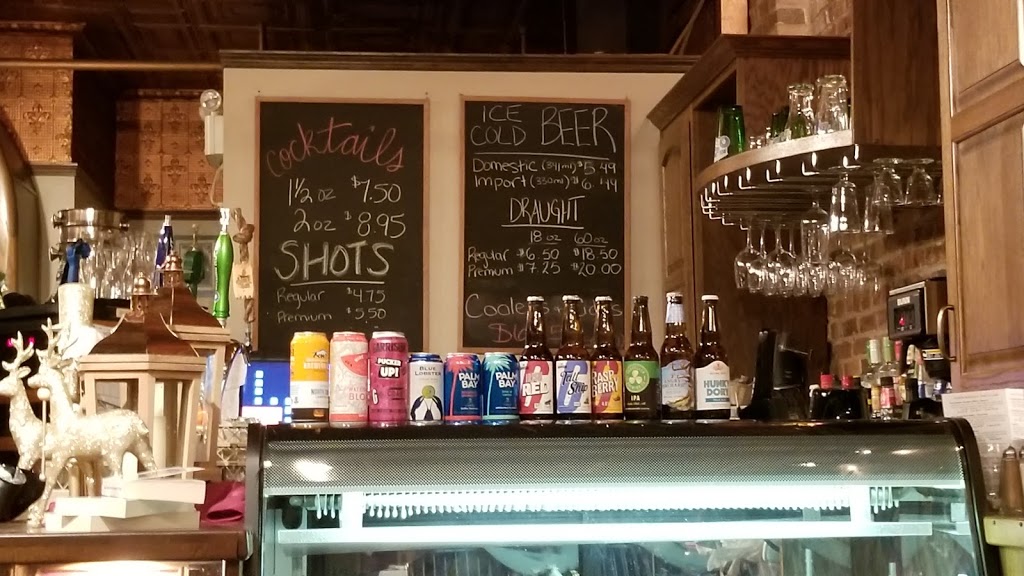 Cocktails
1½ oz $7.50
2 oz $8.95
SHOTS
Regular $4.75
Premium $5.50
ICE
COLD BEER
Domestic (341ml) $5.49
Import (330ml) $6.49
DRAUGHT
18oz 60oz
Regular $6.50 $18.50
Premium $7.25 $20.00
Coolers
PUCKER
UP!
BLUE
LOBSTER
PALM
BAY
PALM
BAY
RED
HUNKY
DORY